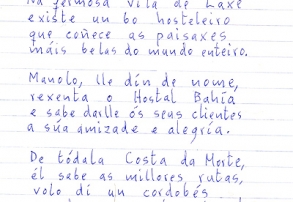 Na fermosa vila de Laxe
existe un bo hosteleiro
que coñece as paisaxes
máis belas do mundo enteiro.
Manolo, lle din de nome,
rexenta o Hostal Bahía
e sabe darlle ós seus clientes
a súa amizade e alegría.
De tódala Costa da Morte,
él sabe as millores rutas,
volo di un cordobés